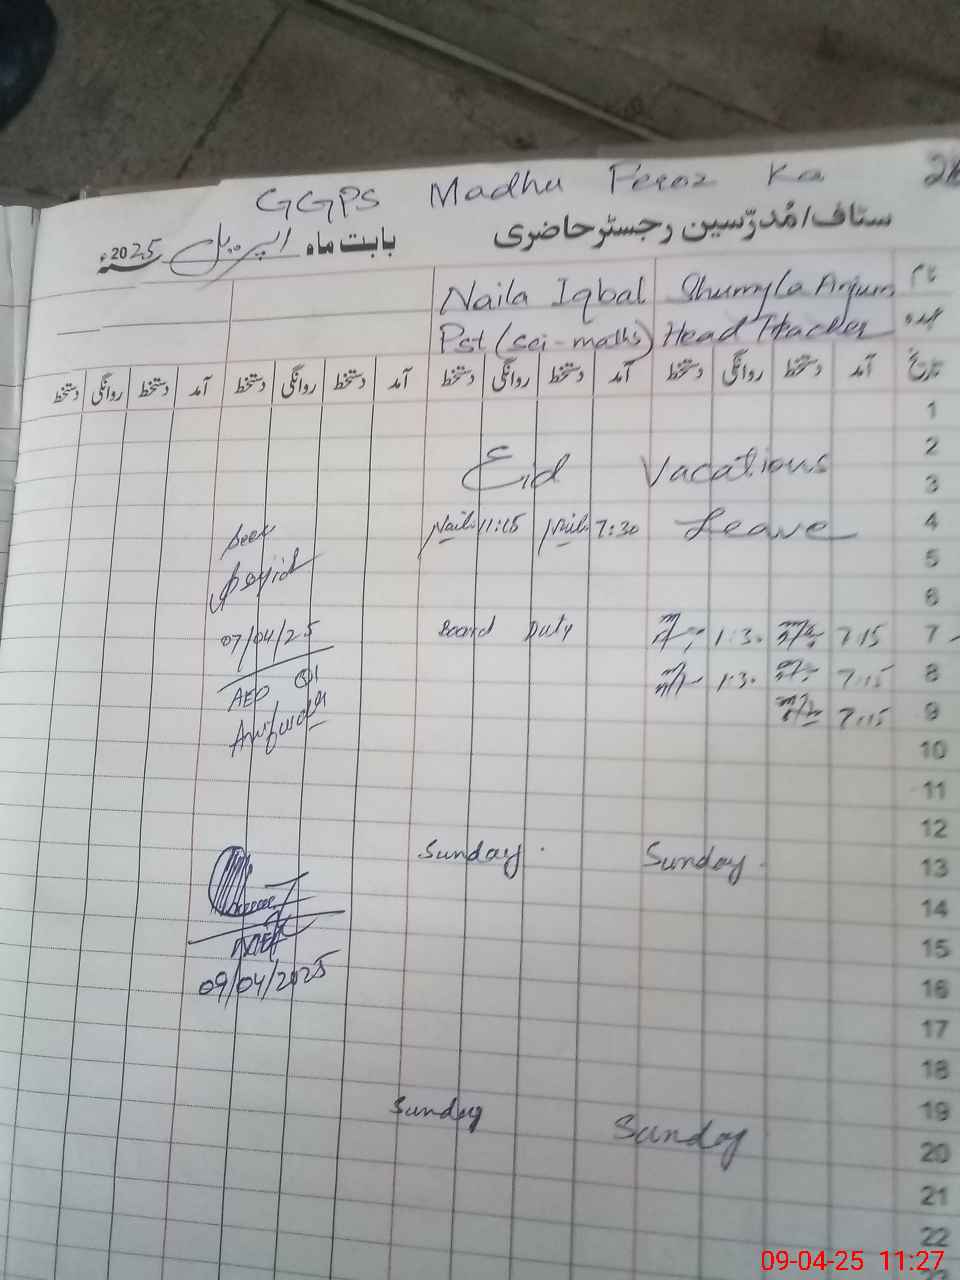 GGPS Madhu Feroz Ka
سٹاف/مُدرّسین رجسٹر حاضری
بابت ماہ اپریل 2025ء
نام Shumyla Anjum Naila Iqbal
عہدہ Head Teacher Pst (sci-maths)
تاریخ آمد دستخط روانگی دستخط آمد دستخط روانگی دستخط آمد دستخط روانگی دستخط آمد دستخط روانگی دستخط
1
2
Eid Vacations
3
4 Leave 7:30 Nail 11:15 Nail
Seen
5
6
7 7:15 1:30 Board Duty
07/04/25
8 7:15 1:30
AEO
9 7:15
10
11
12
13 Sunday Sunday
14
15
16
09/04/2025
17
18
19
20 Sunday Sunday
21
22
09-04-25 11:27